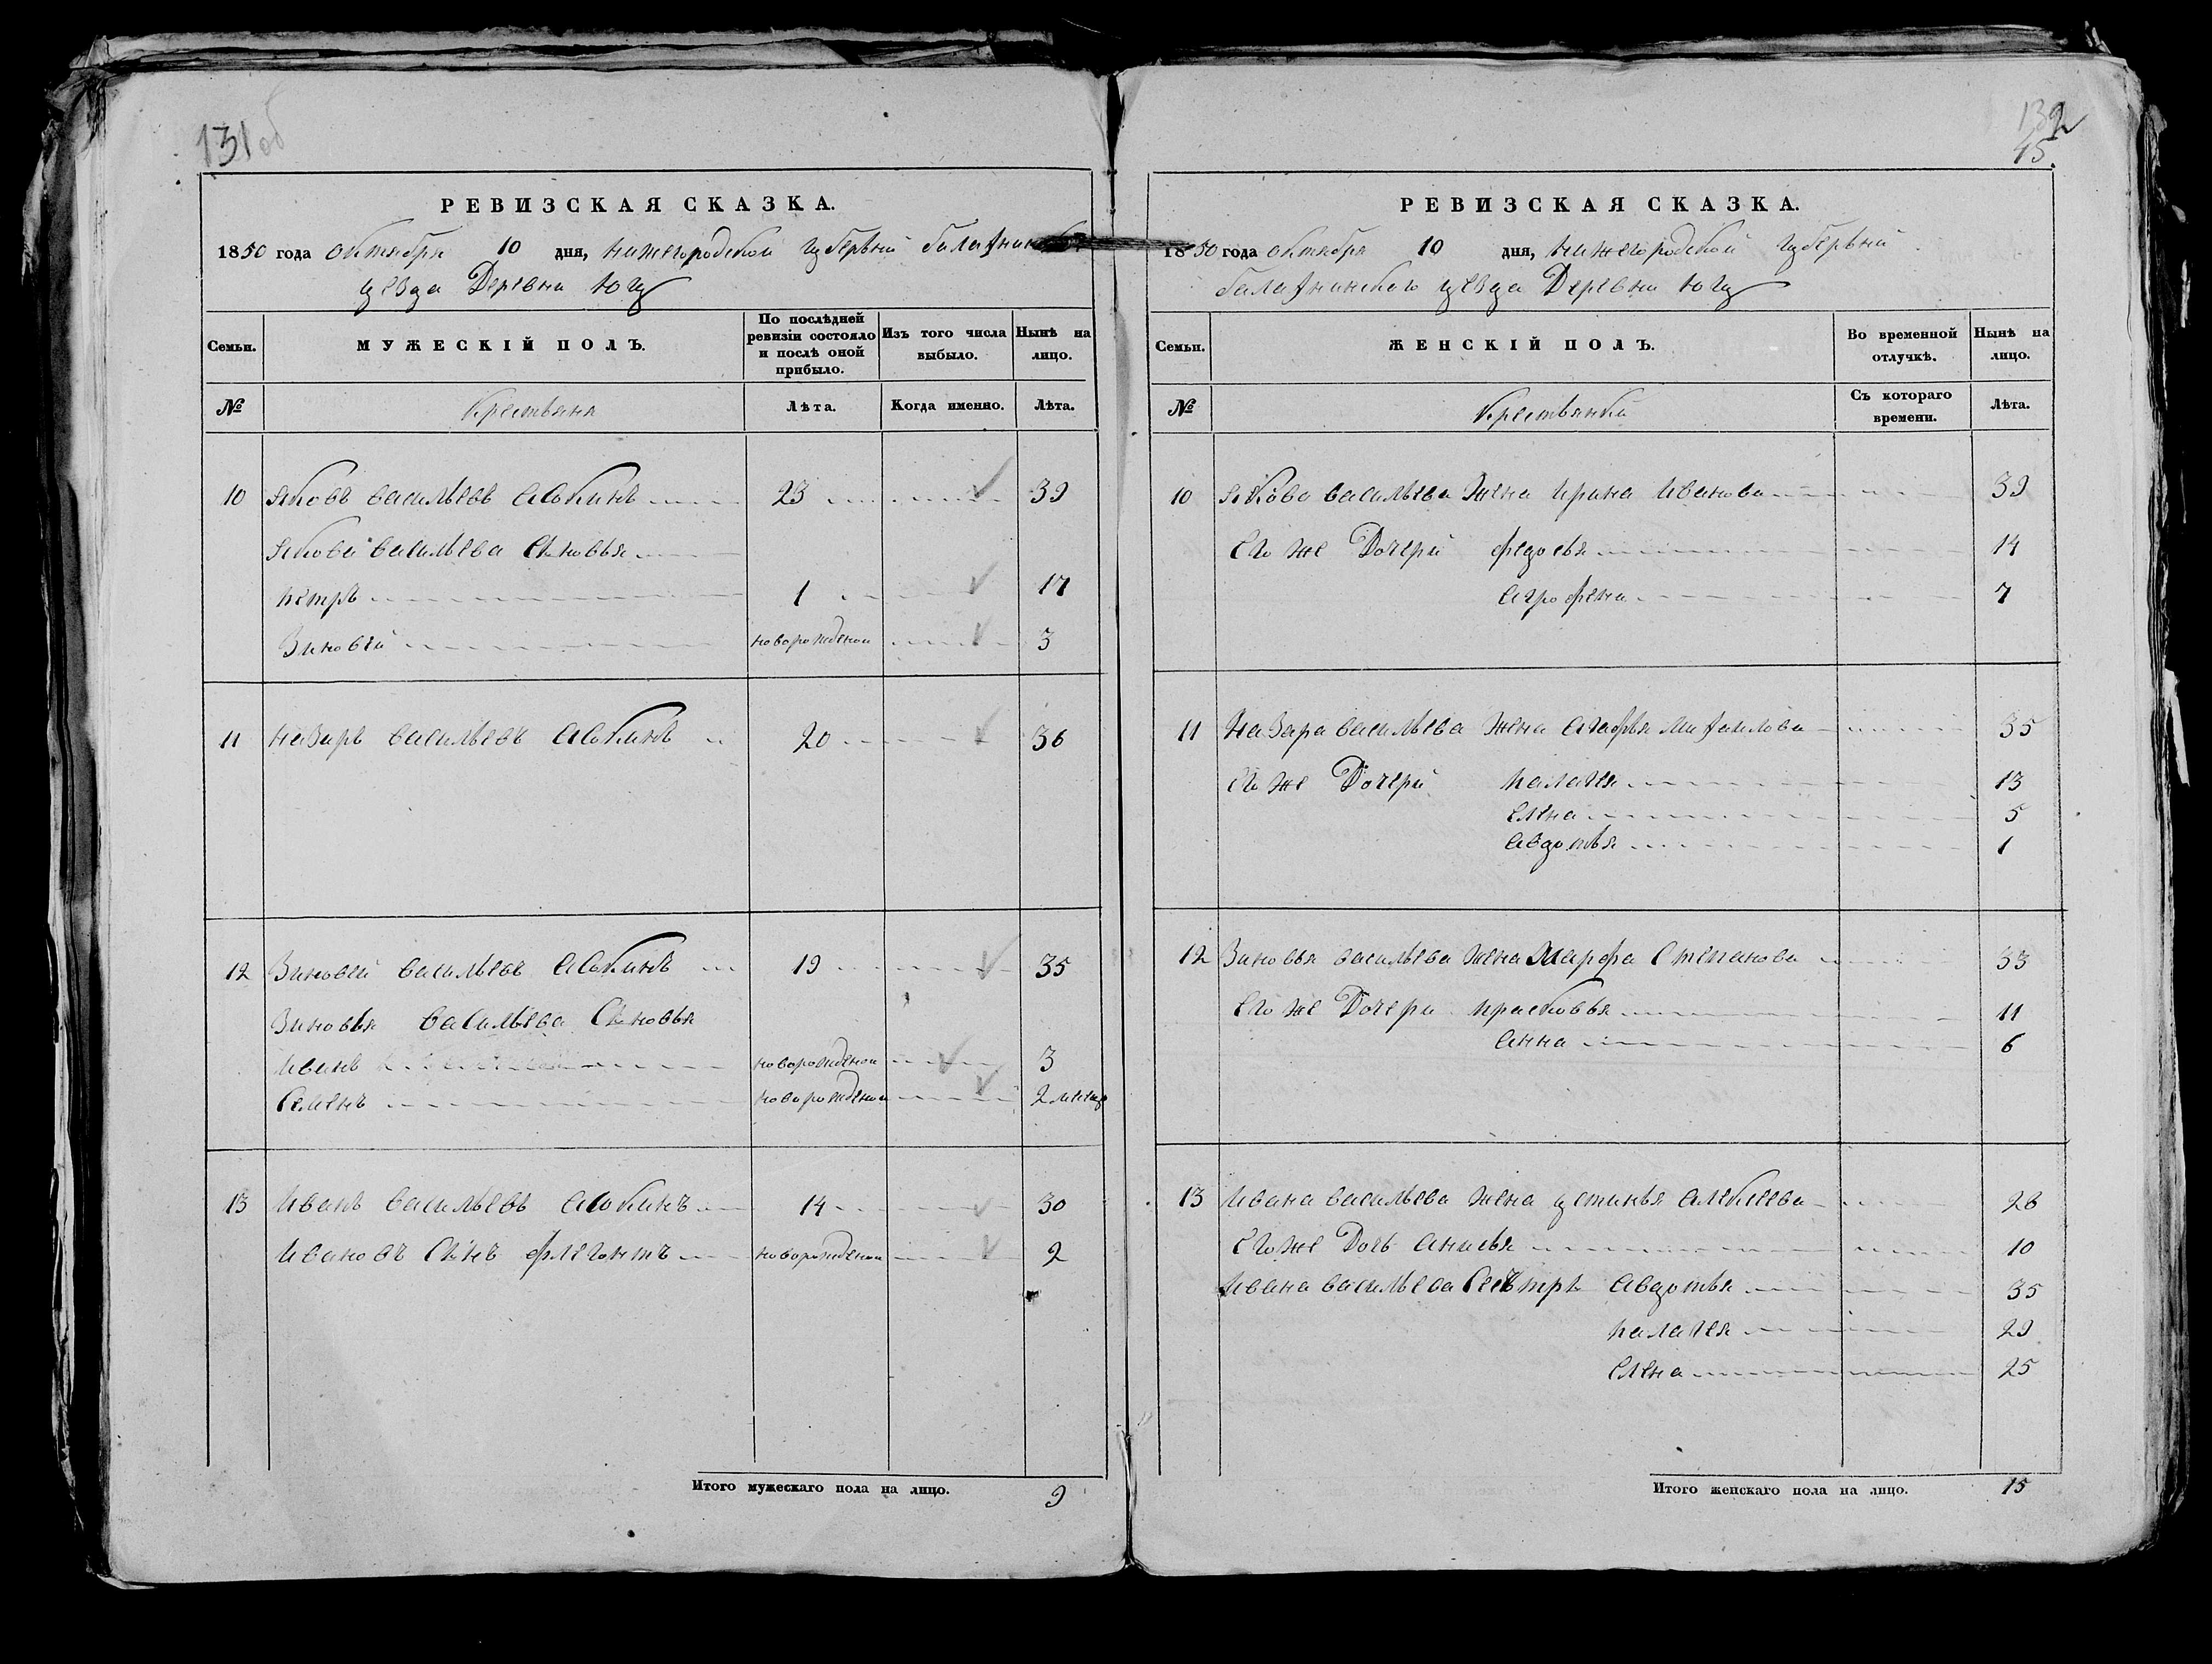 131 об
РЕВИЗСКАЯ СКАЗКА.
1850 года октября 10 дня, нижегородской губерьнии
уезда Деревни Югу
Семьи. МУЖЕСКІЙ ПОЛЪ. По послѣдней ревизіи состояло и послѣ оной прибыло. Изъ того числа выбыло. Нынѣ на лицо.
№ Крестьяня Лѣта. Когда именно. Лѣта.
10 Яковъ васильевъ 23 39
Якова васильева Сыновья
петръ 1 17
Зиновей новорожденой 3
11 назаръ васильевъ 20 36
12 Зиновей васильевъ 19 35
Зиновья васильева Сыновья
иванъ новорожденой 3
Семенъ новорожденой 2
13 иванъ васильевъ 14 30
ивановъ Сынъ флегонтъ новорожденой 2
Итого мужескаго пола на лицо. 9
132
45
РЕВИЗСКАЯ СКАЗКА.
1850 года октября 10 дня, нижегородской губерьнии
балахнинскаго уезда Деревни Югу
Семьи. ЖЕНСКІЙ ПОЛЪ. Во временной отлучкѣ. Нынѣ на лицо.
№ Крестьянки Съ котораго времени. Лѣта.
10 Якова васильева жена ирина иванова 39
его же Дочери федосья 14
аграфена 7
11 назара васильева жена агафья михаилова 35
его же Дочери палагея 13
елена 5
авдотья 1
12 Зиновья васильева жена Марфа Степанова 33
его же Дочери прасковья 11
анна 6
13 ивана васильева жена устинья алексеева 26
его же Дочь анисья 10
ивана васильева Сестры авдотья 35
палагея 29
елена 25
Итого женскаго пола на лицо. 15